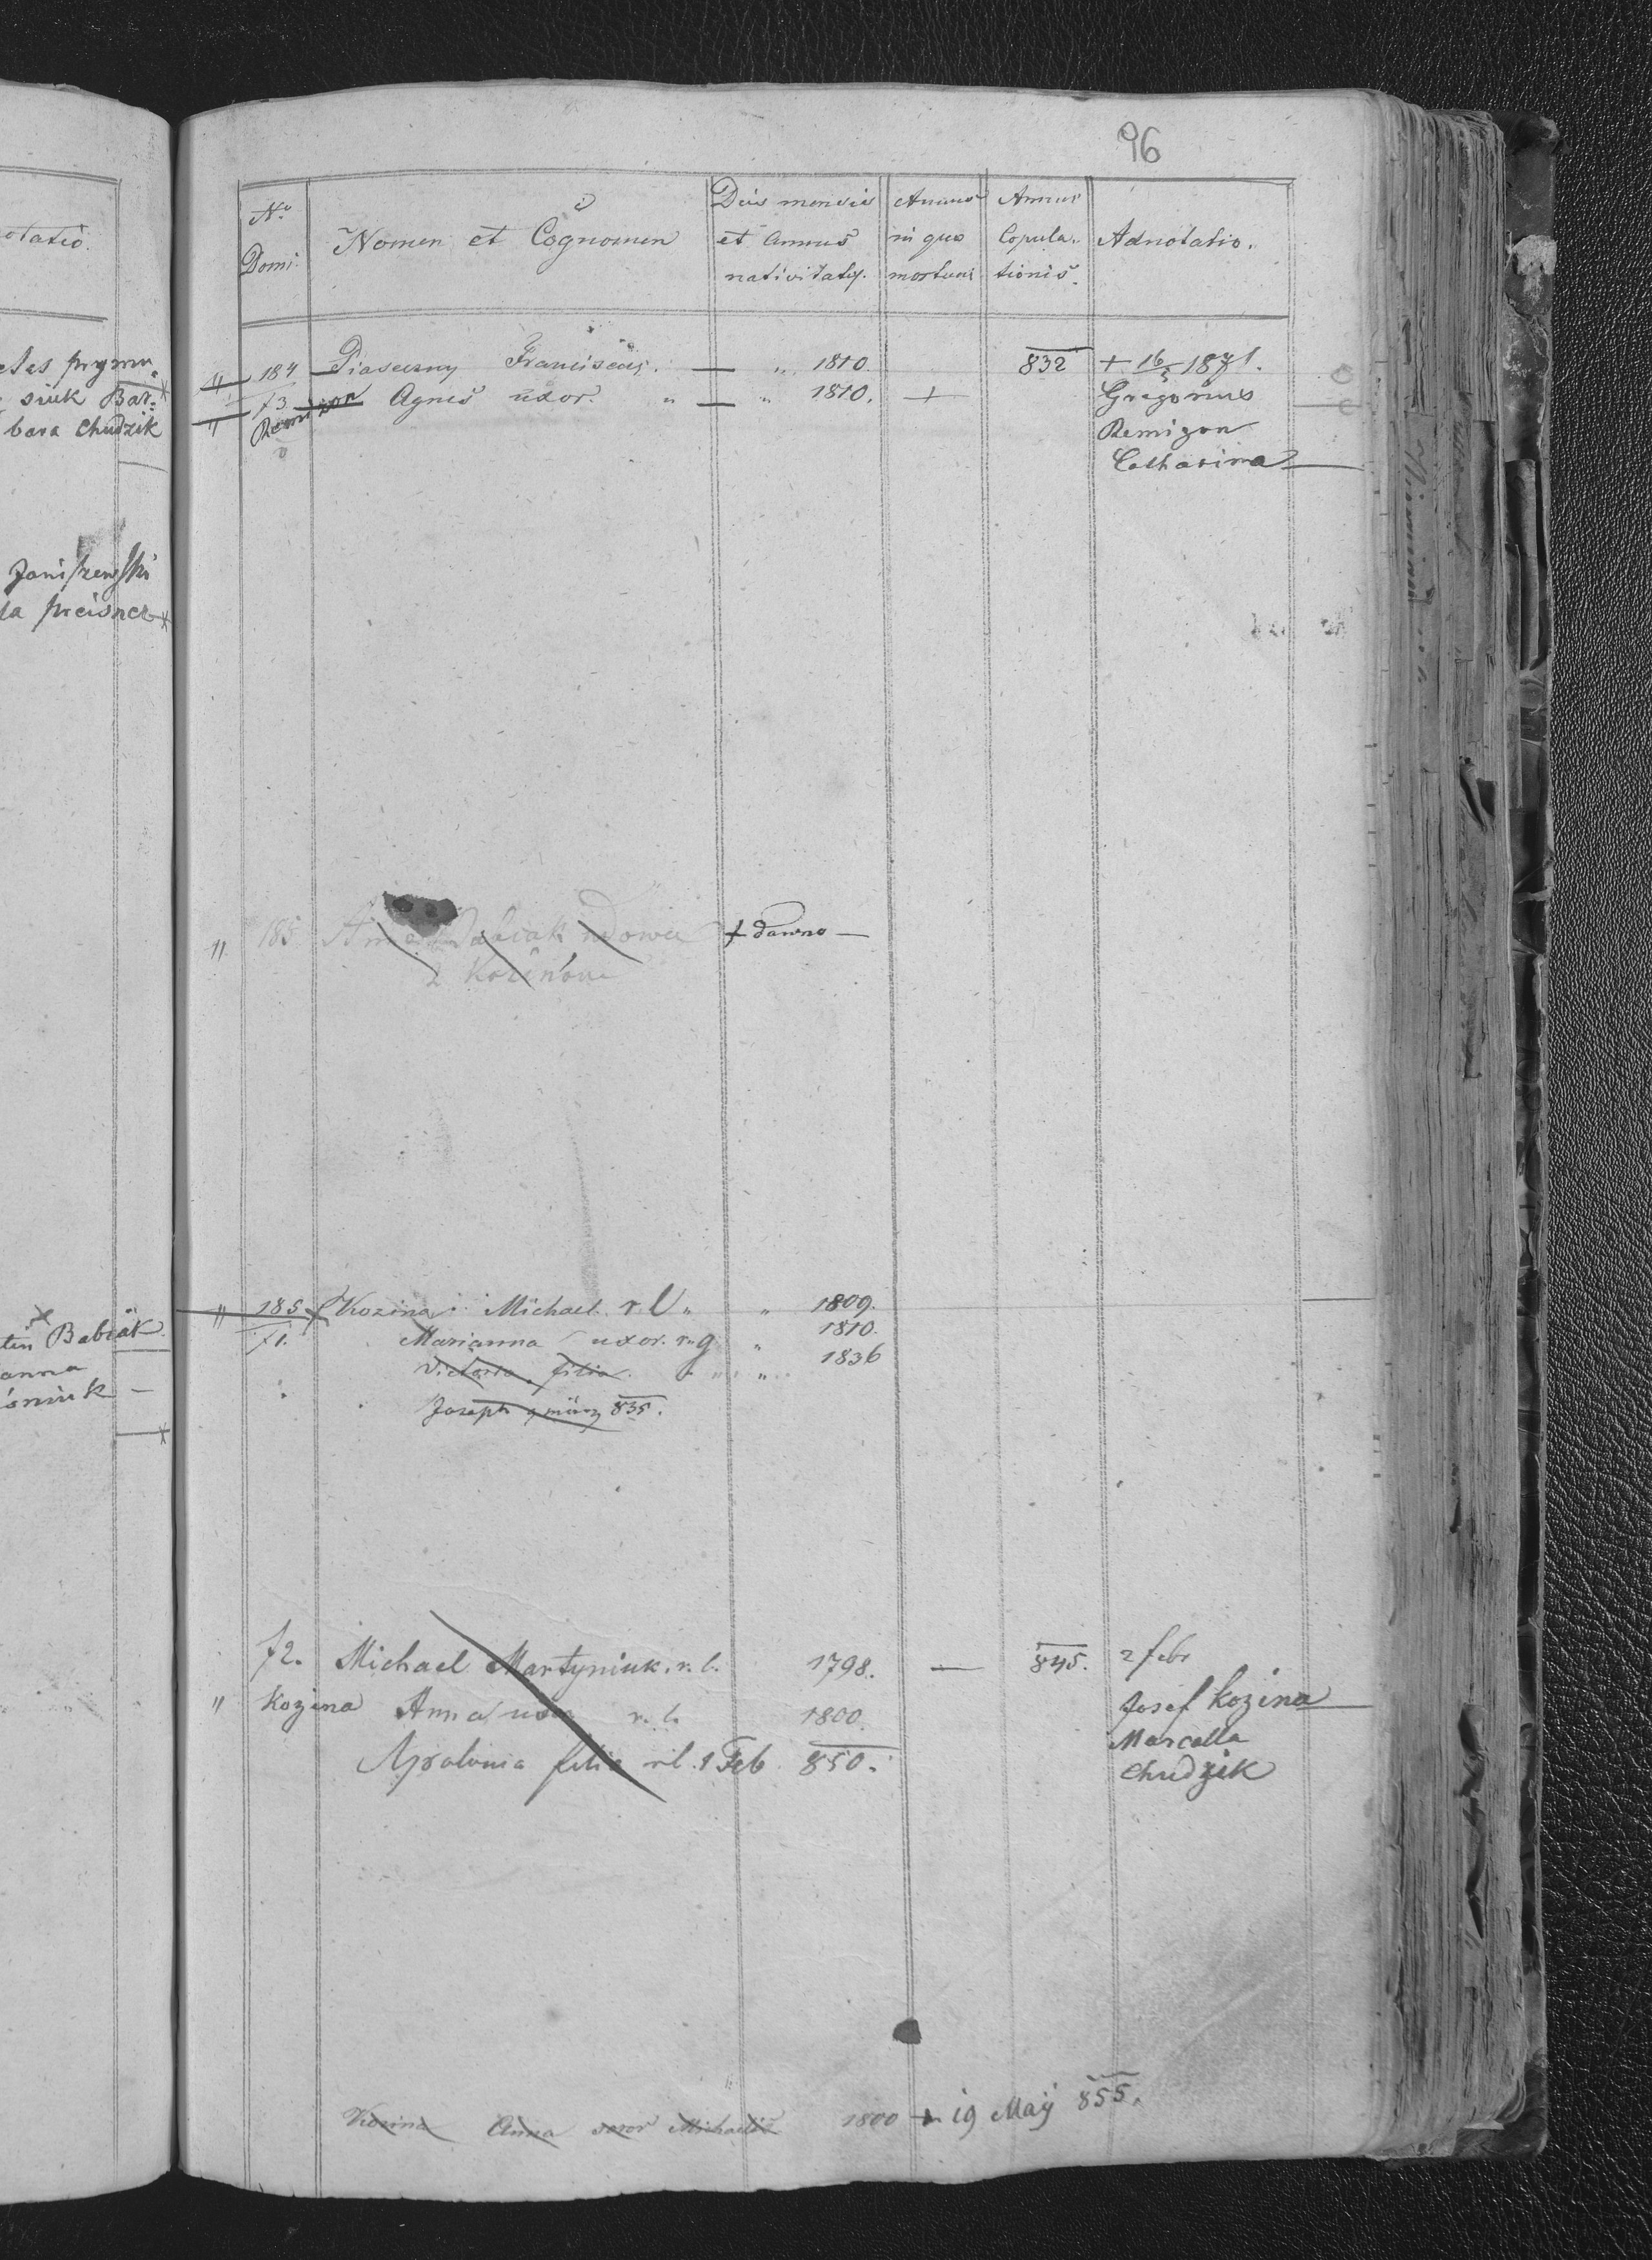 96
otatio.
No Domi. Nomen et Cognomen Dies mensis et Annus nativitatis. Annus in quo mortuus Annus Copulationis. Adnotatio.
siuk Bar:
bara Chudzik
Janiszewski
la preisner
Babiak
anna
śniuk
" 184 Piaseczny Franciscus. — " 1810. 832 + 16/5 1871.
73 Agnes uxor. " — " 1810. + Gregorius
Remizon Remizon
Catharina
" 185 Anna Babiak wdowa + dawno —
z Kozinów
" 185 Kozina Michael r. l. " " 1809.
71. Marianna uxor. r. g " 1810.
Victoria filia. " " 1836
Joseph 835.
72. Michael Martyniuk. r. l. 1798. — 845. 2 febr
" Kozina Anna uxor r. l. 1800. Josef Kozina
Marcella
Apolonia filia r l. 1 Feb 850. Chudzik
Kozina Anna soror Michaelis 1800 + 19 May 855.